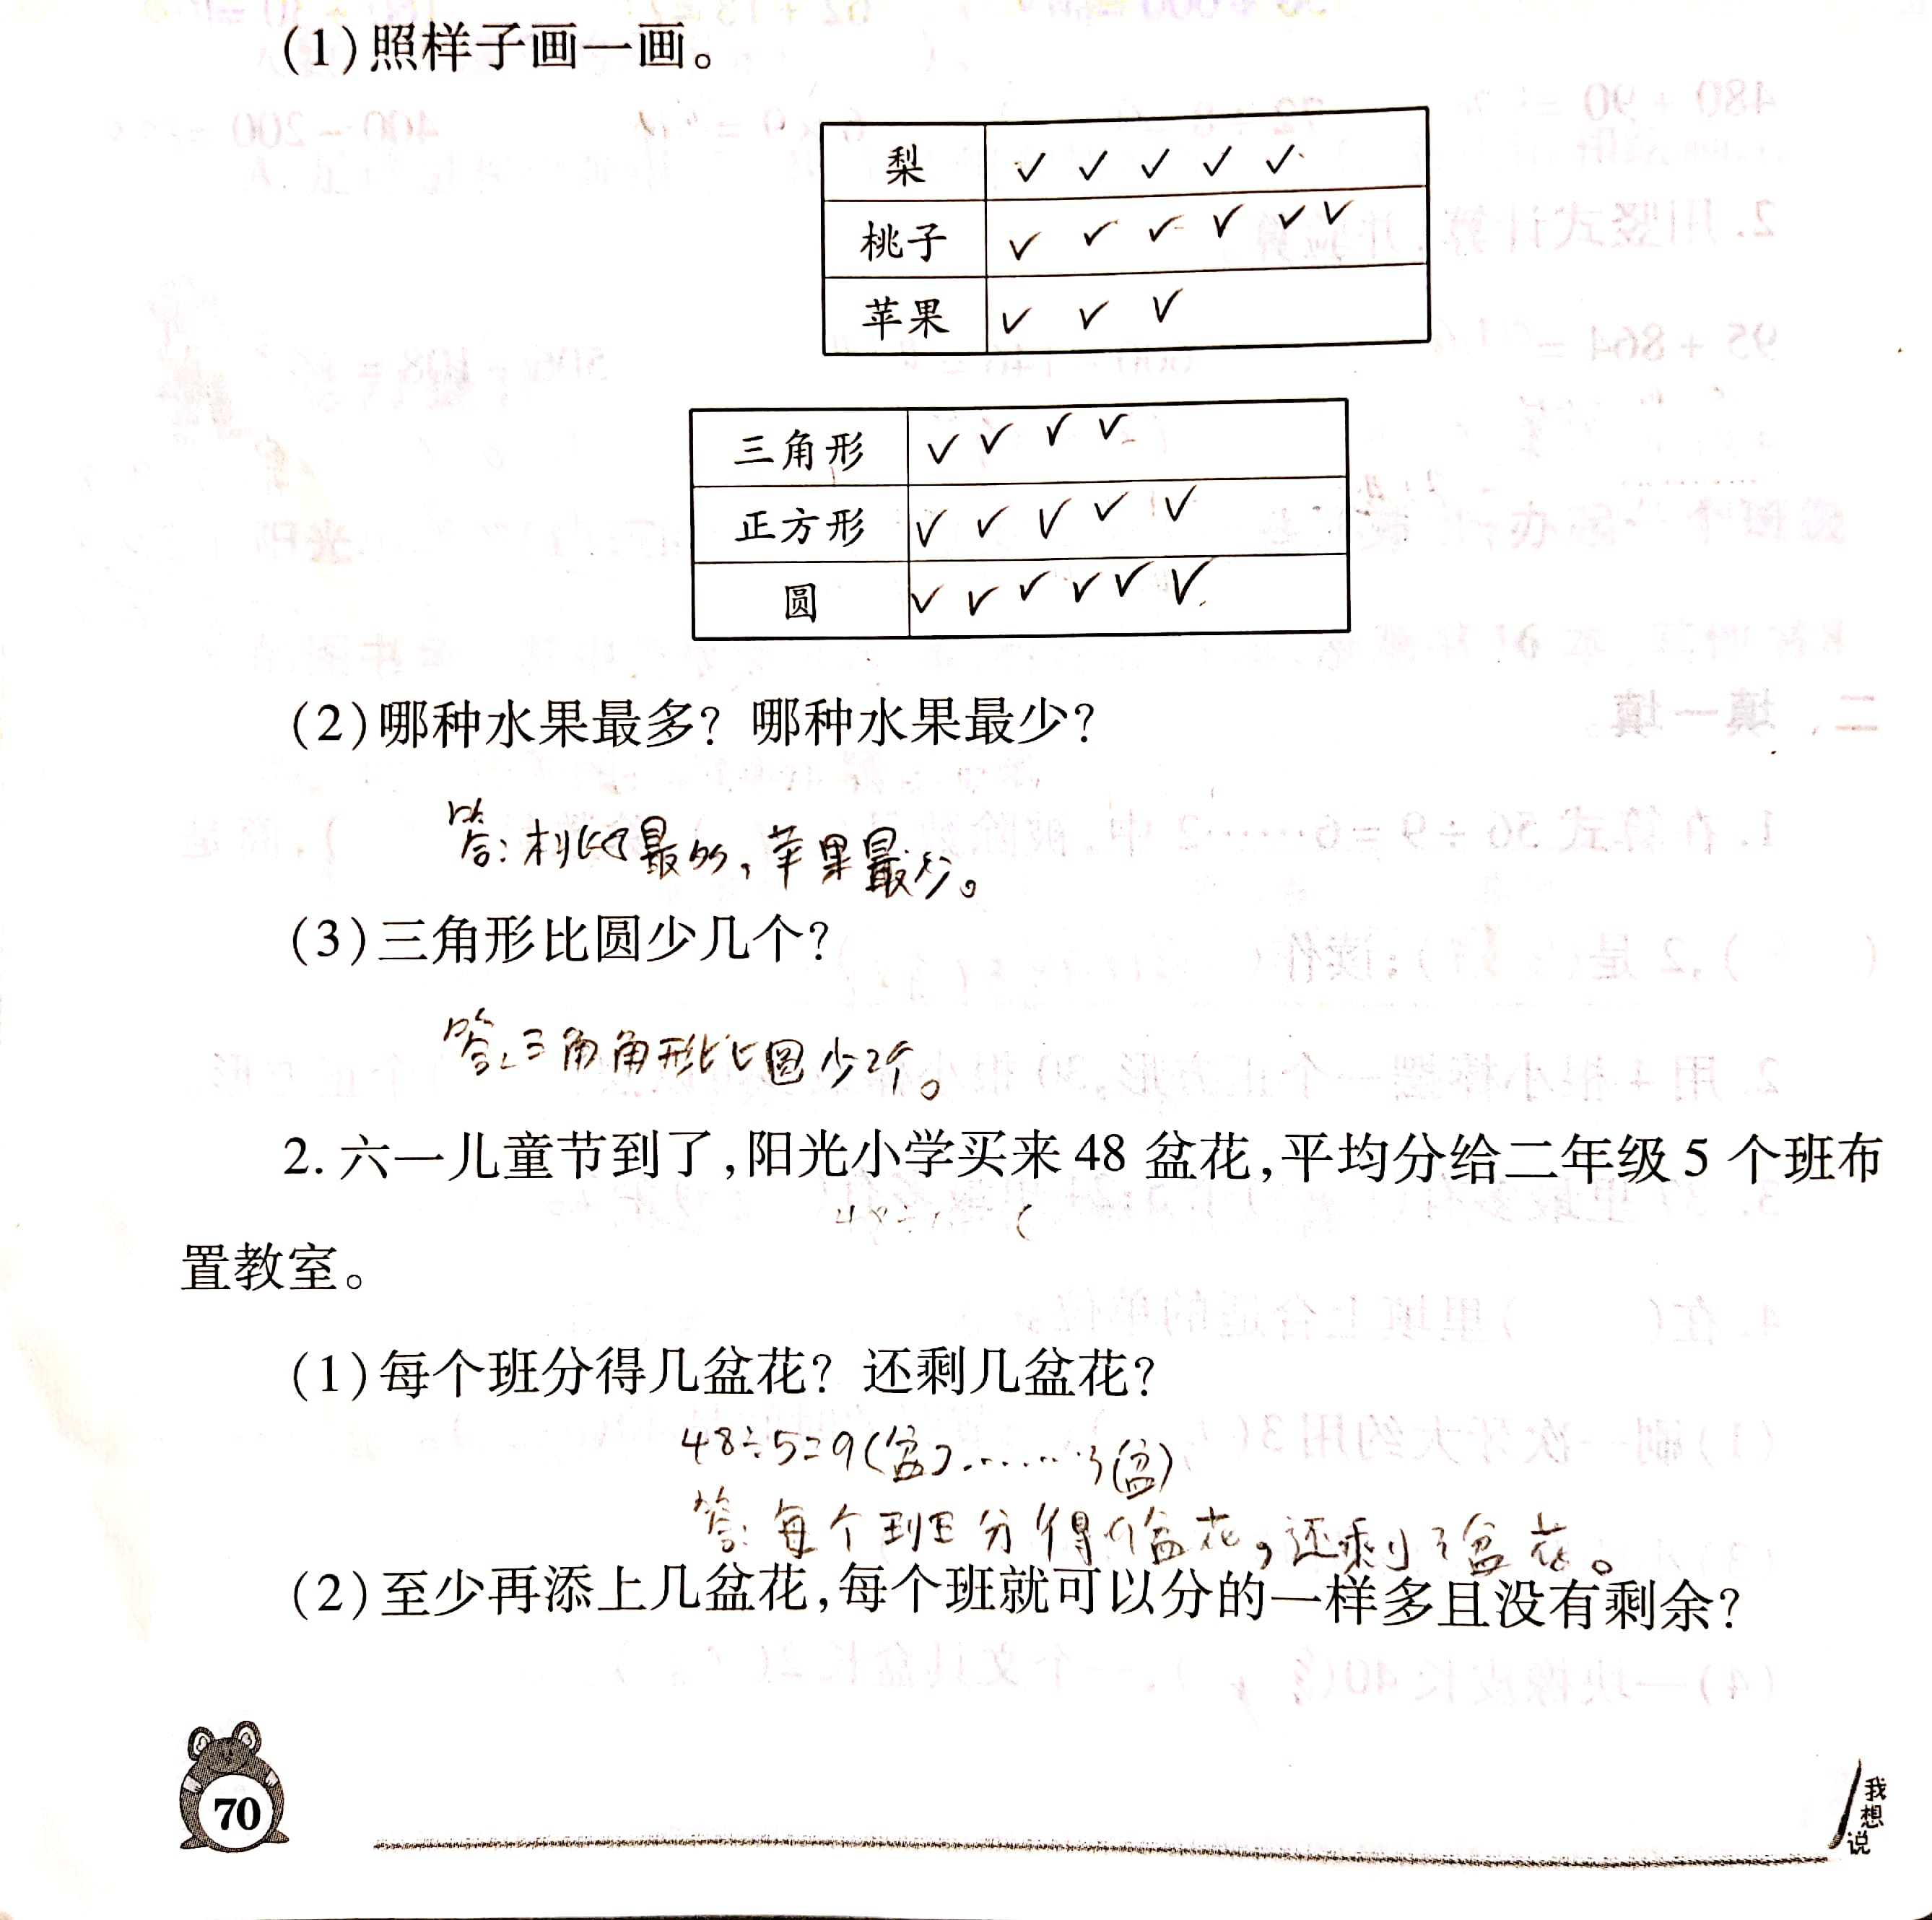 (1)照样子画一画。
梨 ✓ ✓ ✓ ✓ ✓
桃子 ✓ ✓ ✓ ✓ ✓ ✓
苹果 ✓ ✓ ✓
三角形 ✓ ✓ ✓ ✓
正方形 ✓ ✓ ✓ ✓ ✓
圆 ✓ ✓ ✓ ✓ ✓ ✓
(2)哪种水果最多? 哪种水果最少?
答:桃子最多,苹果最少。
(3)三角形比圆少几个?
答:三角角形比圆少2个。
2. 六一儿童节到了,阳光小学买来 48 盆花,平均分给二年级 5 个班布
置教室。
(1)每个班分得几盆花? 还剩几盆花?
48÷5=9(盆)………3(盆)
答:每个班分得9盆花,还剩3盆花。
(2)至少再添上几盆花,每个班就可以分的一样多且没有剩余?
70
我想说